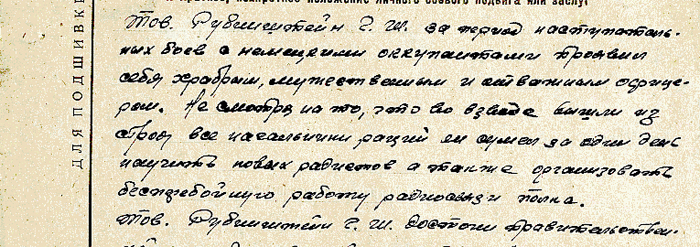 и краткое, конкретное изложение личного боевого подвига или заслуг
ДЛЯ ПОДШИВКИ
Тов. Рубинштейн Г. Ш. за период наступатель-
ных боев с немецкими оккупантами проявил
себя храбрым, мужественным и отважным офице-
ром. Не смотря на то, что во взводе вышли из
строя все начальники раций он сумел за один день
научить новых радистов а также организовать
бесперебойную работу радиосвязи полка.
Тов. Рубинштейн Г. Ш. достоин правительствен-